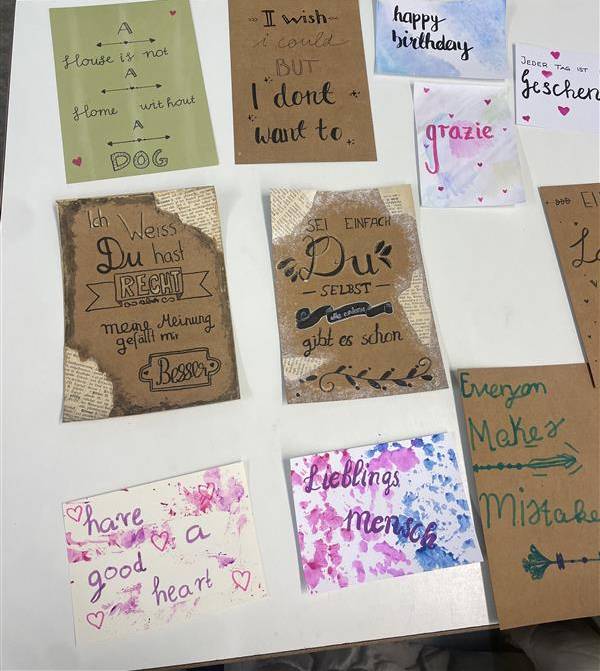 A
House is not
A
Home without
A
DOG
I wish
i could
BUT
I dont
want to
happy
birthday
JEDER TAG IST
Geschen
grazie
Ich Weiss
Du hast
RECHT
meine Meinung
gefällt mir
Besser
SEI EINFACH
Du
SELBST
alle anderen
gibt es schon
EI
Everyon
Makes
Mistake
have
a
good
heart
Lieblings
mensch